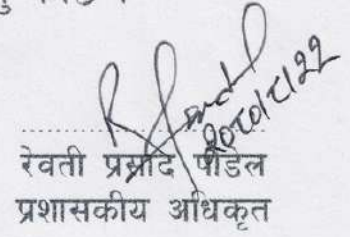 २०८०/८/२२
रेवती प्रसाद पौडेल
प्रशासकीय अधिकृत